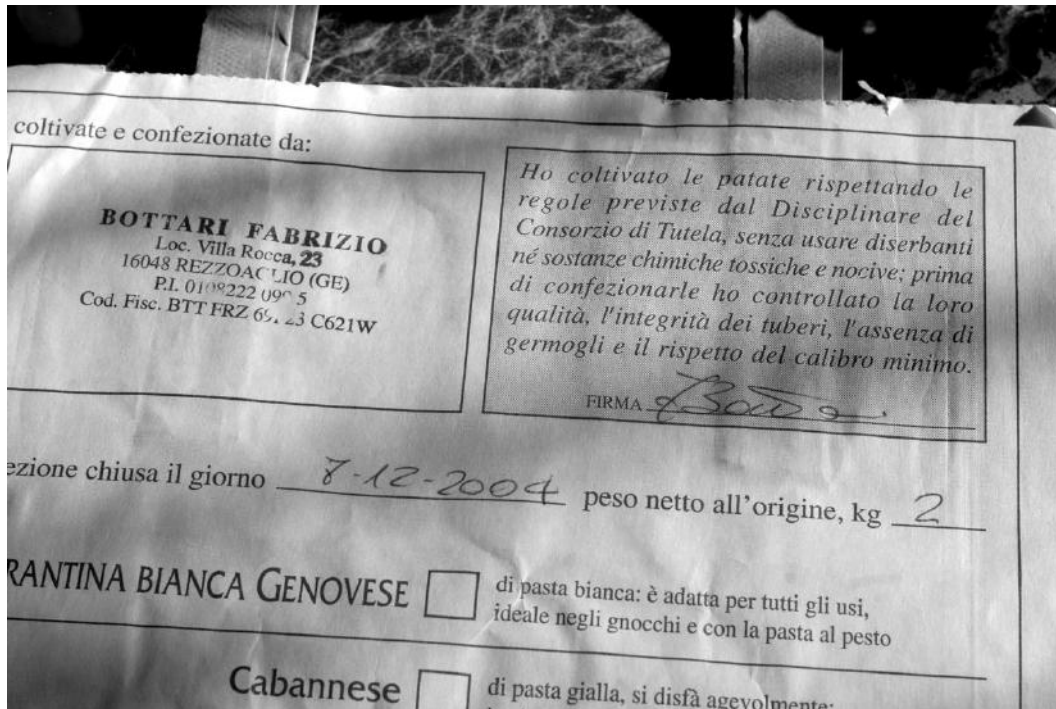 coltivate e confezionate da:
BOTTARI FABRIZIO
Loc. Villa Rocca, 23
16048 REZZOAGLIO (GE)
P.I.
Cod. Fisc. BTT FRZ C621W
Ho coltivato le patate rispettando le
regole previste dal Disciplinare del
Consorzio di Tutela, senza usare diserbanti
né sostanze chimiche tossiche e nocive; prima
di confezionarle ho controllato la loro
qualità, l'integrità dei tuberi, l'assenza di
germogli e il rispetto del calibro minimo.
FIRMA
ezione chiusa il giorno 8-12-2004 peso netto all'origine, kg 2
RANTINA BIANCA GENOVESE
di pasta bianca: è adatta per tutti gli usi,
ideale negli gnocchi e con la pasta al pesto
Cabannese
di pasta gialla, si disfà agevolmente: